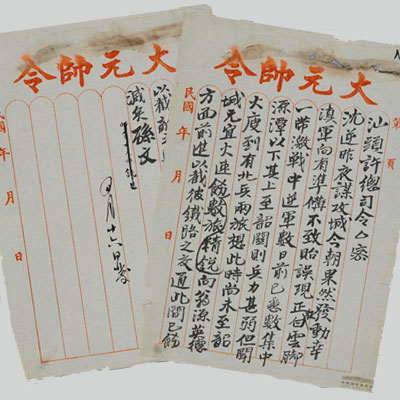 大元帥令
第 頁
汕頭許總司令公密
沈逆昨夜謀攻城今朝果然發動幸
滇軍向有準備不致貽誤現正白雲脚
一帶激戰中逆軍數日前已悉數集中
源潭以下其上至韶關則兵力甚弱但聞
大庾到有北兵兩旅想此時尚未至韶
城兄宜火速飭數旅精銳向翁源英德
方面前進以截彼鐵路之交通此間已飭
民國 年 月 日
大元帥令
以截
滅矣孫文
四月十六日發
國 年 月 日